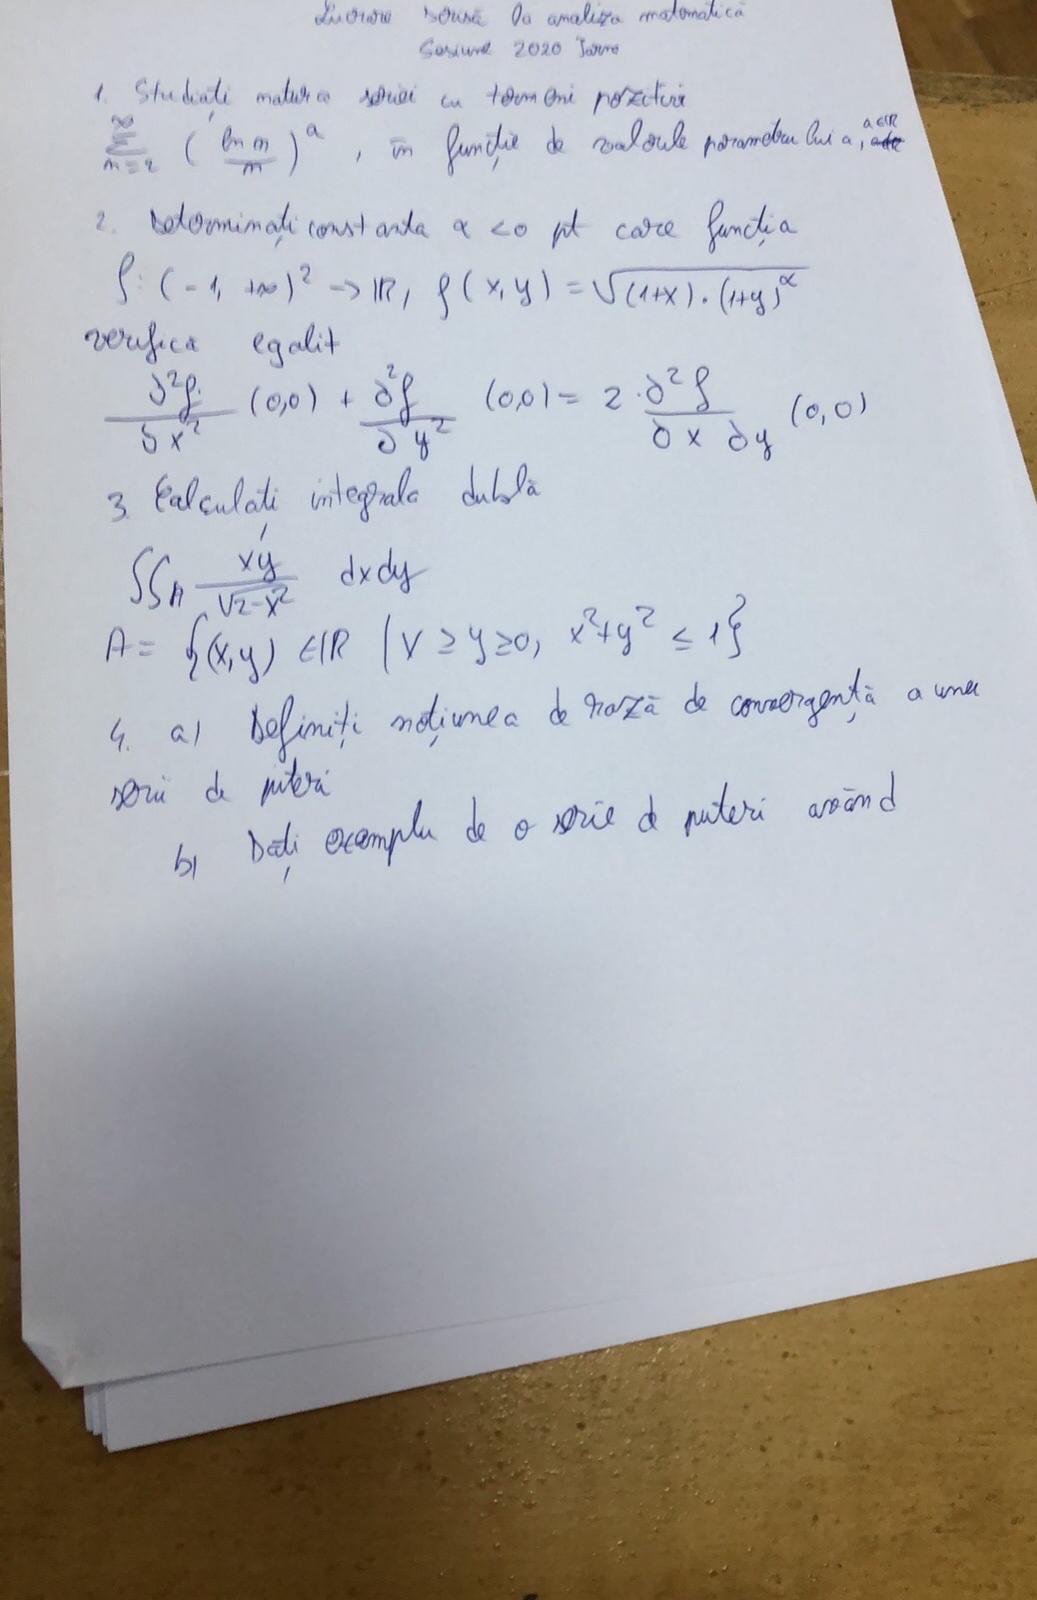 Lucrare scrisă la analiza matematică
Sesiune 2020 Iarna
1. Studiați natura seriei cu termeni pozitivi
∞∑n=2 (ln n / n)^a , în funcție de valorile parametru lui a, a∈R
2. Determinați constanta α <0 pt care funcția
f: (-1, +∞)² → R, f(x,y) = √((1+x)·(1+y)^α)
verifica egalit
∂²f/∂x² (0,0) + ∂²f/∂y² (0,0) = 2·∂²f/∂x∂y (0,0)
3. Calculați integrala dublă
∫∫A xy/√(2-x²) dxdy
A = {(x,y) ∈ R | x ≥ y ≥ 0, x²+y² ≤ 1}
4. a) Definiți noțiunea de rază de convergență a unei
serii de puteri
b) Dați exemplu de o serie de puteri având